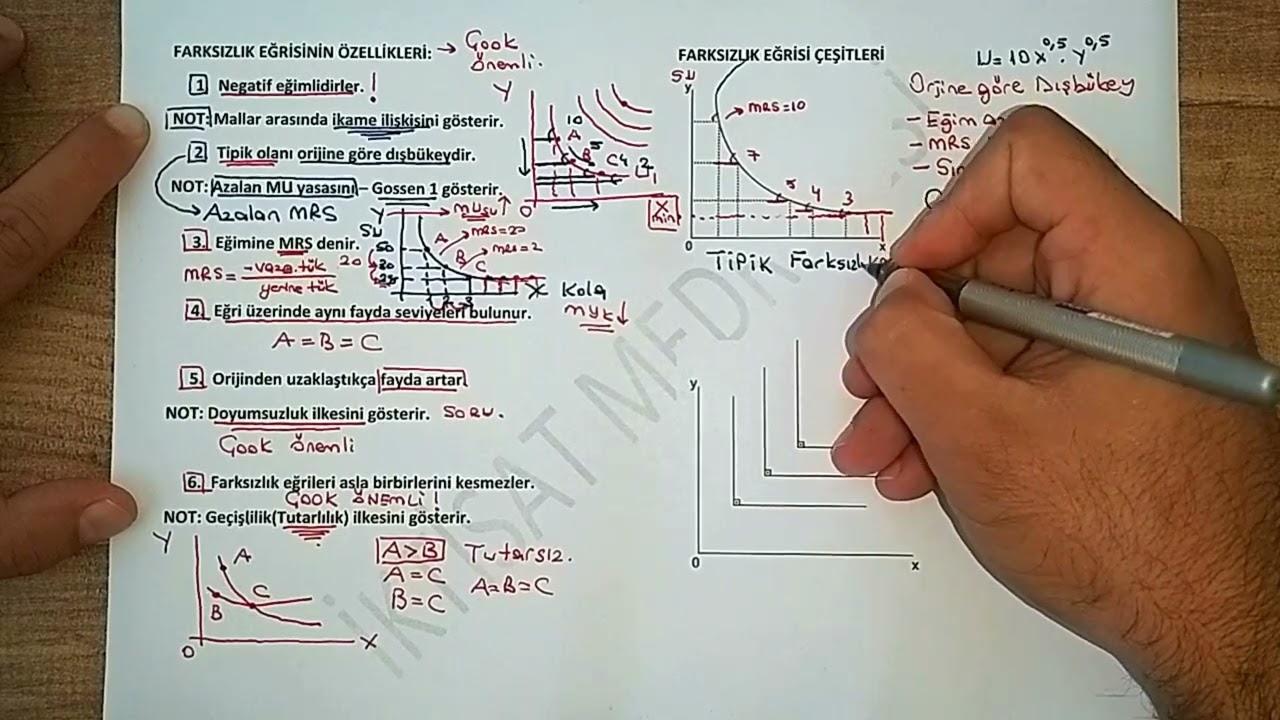 FARKSIZLIK EĞRİSİNİN ÖZELLİKLERİ: → Çook önemli.
1 Negatif eğimlidirler. !
NOT: Mallar arasında ikame ilişkisini gösterir.
2 Tipik olanı orijine göre dışbükeydir.
NOT: Azalan MU yasasını – Gossen 1 gösterir.
→ Azalan MRS
3. Eğimine MRS denir.
MRS = -vazg.tük / yerine tük
4 Eğri üzerinde aynı fayda seviyeleri bulunur.
A = B = C
5 Orijinden uzaklaştıkça fayda artar
NOT: Doyumsuzluk ilkesini gösterir. SORU.
Çook önemli
6. Farksızlık eğrileri asla birbirlerini kesmezler.
ÇOOK ÖNEMLİ!
NOT: Geçişlilik(Tutarlılık) ilkesini gösterir.
Y
A
B
C
0
X
A > B Tutarsız.
A = C
B = C
A=B=C
Y
10
A
B
5
C 4
0
X
min
Y
MUsu ↑
Su
A
MRS=20
B
MRS=2
C
50
20
30
X Kola
MUK ↓
FARKSIZLIK EĞRİSİ ÇEŞİTLERİ
U = 10X^0,5 . Y^0,5
Orjine göre Dışbükey
- Eğim
- MRS
SU
y
→ MRS=10
7
5
4
3
0
x
TİPİK Farksızlık
y
0
x
İKTİSAT MEDR